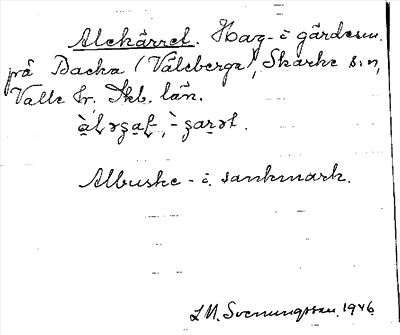 Alekärret. Hag- i gärdesm.
på Backa (Våleberga), Skärke s:n,
Valle hr. Skb. län.
Albuske- i. sankmark.
S. M. Svenungsson. 1946